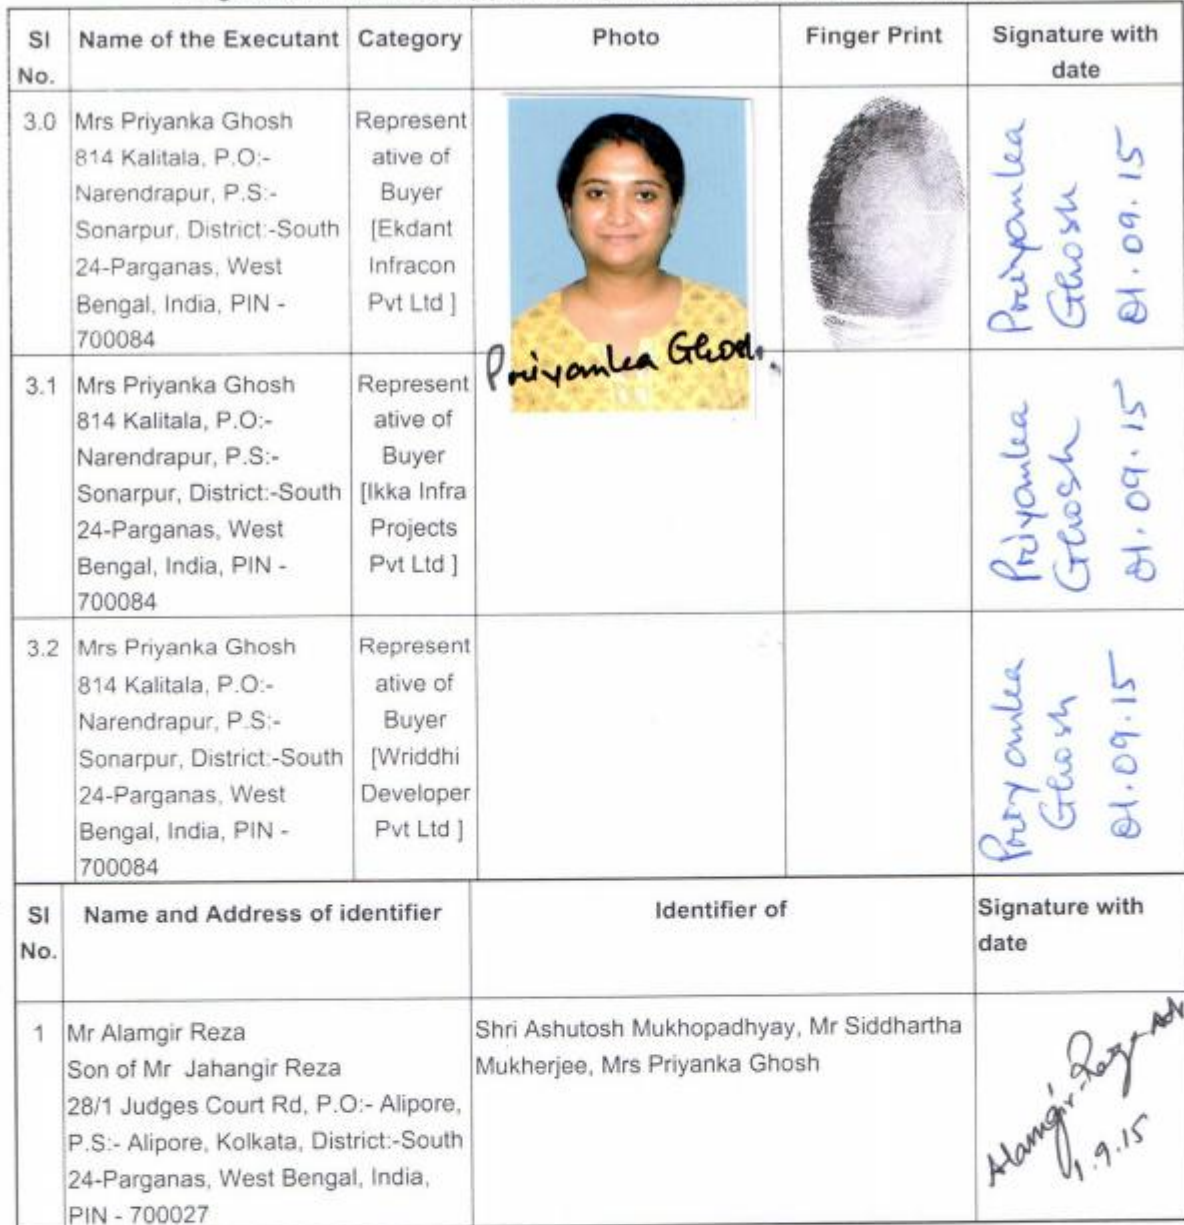 Sl No.
Name of the Executant
Category
Photo
Finger Print
Signature with date
3.0
Mrs Priyanka Ghosh
814 Kalitala, P.O:-
Narendrapur, P.S:-
Sonarpur, District:-South
24-Parganas, West
Bengal, India, PIN -
700084
Represent
ative of
Buyer
[Ekdant
Infracon
Pvt Ltd ]
Priyanka Ghosh.
Priyanka
Ghosh
01.09.15
3.1
Mrs Priyanka Ghosh
814 Kalitala, P.O:-
Narendrapur, P.S:-
Sonarpur, District:-South
24-Parganas, West
Bengal, India, PIN -
700084
Represent
ative of
Buyer
[Ikka Infra
Projects
Pvt Ltd ]
Priyanka
Ghosh
01.09.15
3.2
Mrs Priyanka Ghosh
814 Kalitala, P.O:-
Narendrapur, P.S:-
Sonarpur, District:-South
24-Parganas, West
Bengal, India, PIN -
700084
Represent
ative of
Buyer
[Wriddhi
Developer
Pvt Ltd ]
Priyanka
Ghosh
01.09.15
Sl No.
Name and Address of identifier
Identifier of
Signature with
date
1
Mr Alamgir Reza
Son of Mr Jahangir Reza
28/1 Judges Court Rd, P.O:- Alipore,
P.S:- Alipore, Kolkata, District:-South
24-Parganas, West Bengal, India,
PIN - 700027
Shri Ashutosh Mukhopadhyay, Mr Siddhartha
Mukherjee, Mrs Priyanka Ghosh
Alamgir Reza
1.9.15